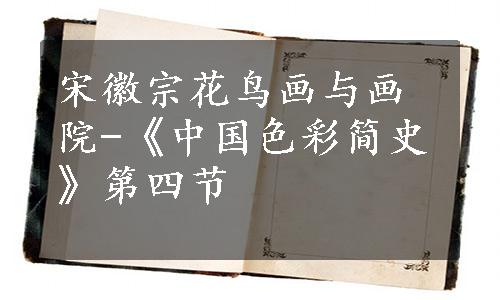 宋徽宗花鸟画与画
院-《中国色彩简史
》第四节